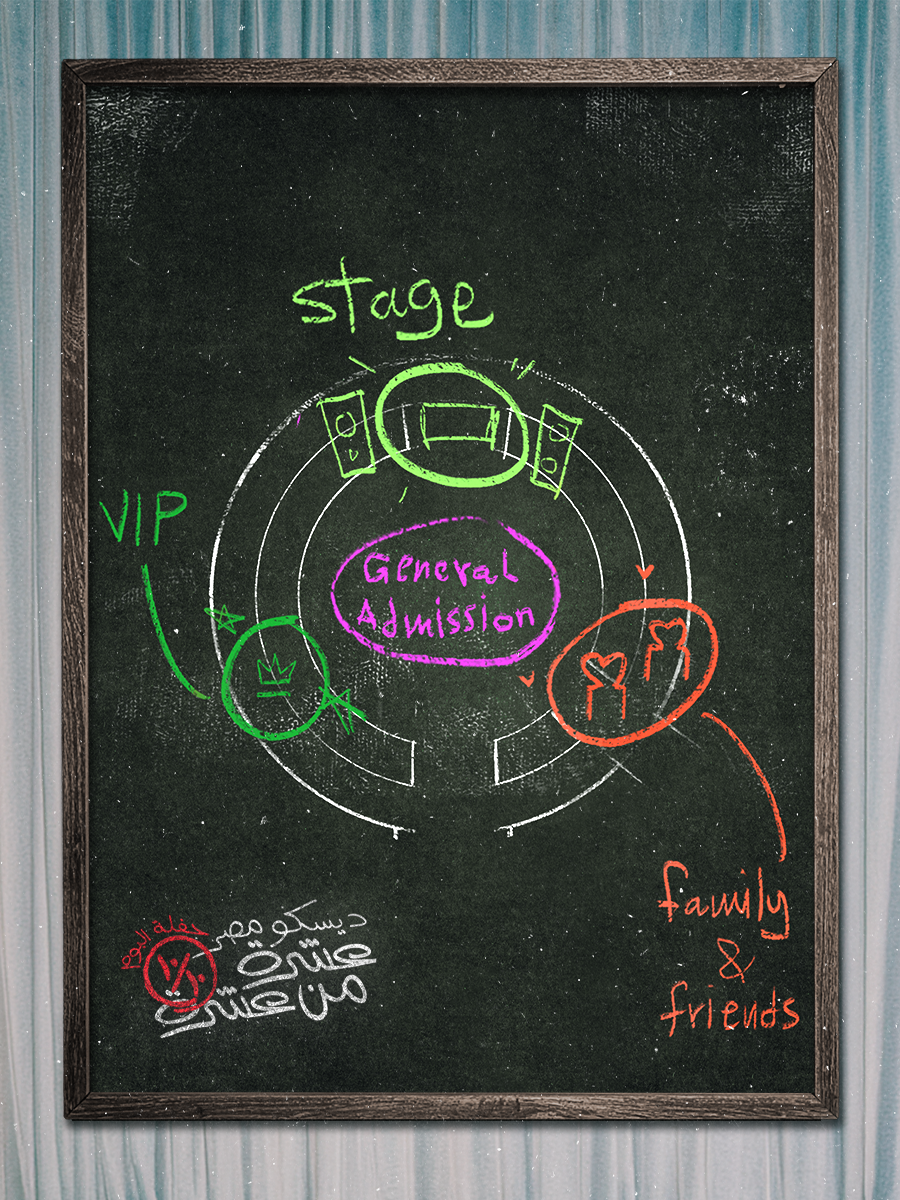 stage
VIP
General
Admission
family
&
friends
ديسكو مصر
عشرة
من عشرة
حفلة البوم
١٠/١٠